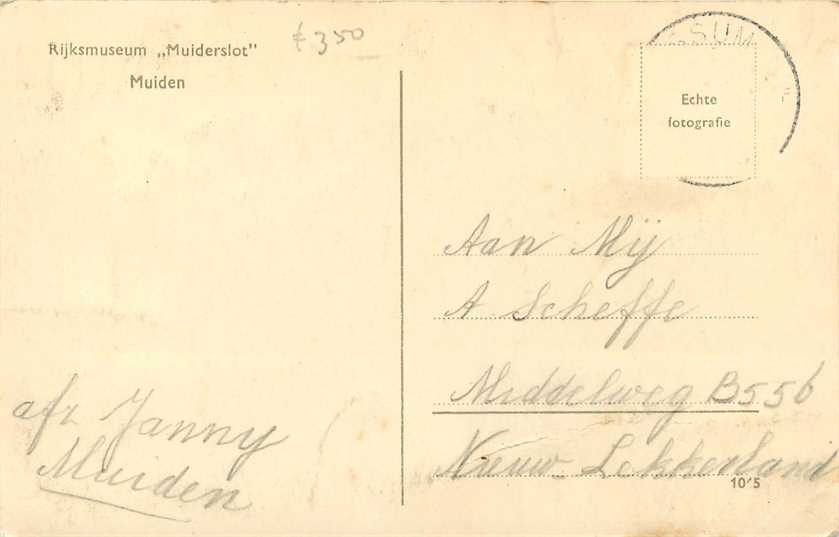 Rijksmuseum „Muiderslot"
Muiden
£ 350
SUM
Echte
fotografie
Aan Mij
A Scheffe
Middelweg B556
Nieuw-Lekkerland
afz Janny
Muiden
1015